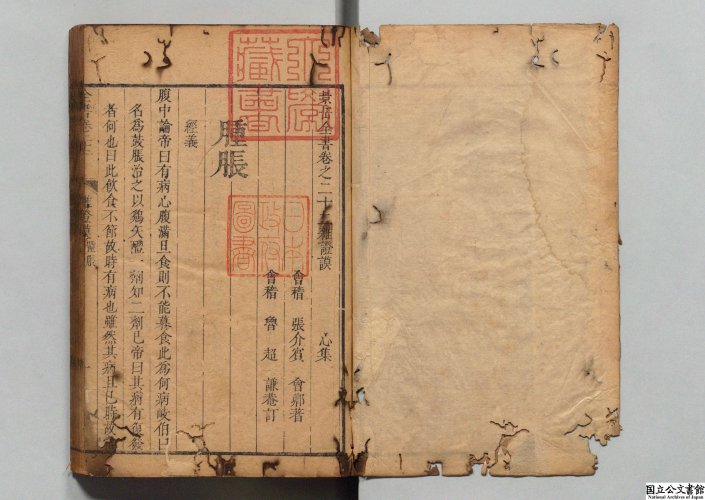 景岳全書卷之二十三雜證謨 心集
會稽 張介賓 會鄉著
會稽 魯超 謙菴訂
腫脹
經義
腹中論帝曰有病心腹滿旦食則不能暮食此為何病岐伯曰
名為鼓脹治之以鷄矢醴一劑知二劑已帝曰其病有復發
者何也曰此飲食不節故時有病也雖然其病且已時故
全書卷 雜證謨 腫脹
日本政府圖書
藏書
国立公文書館
National Archives of Japan